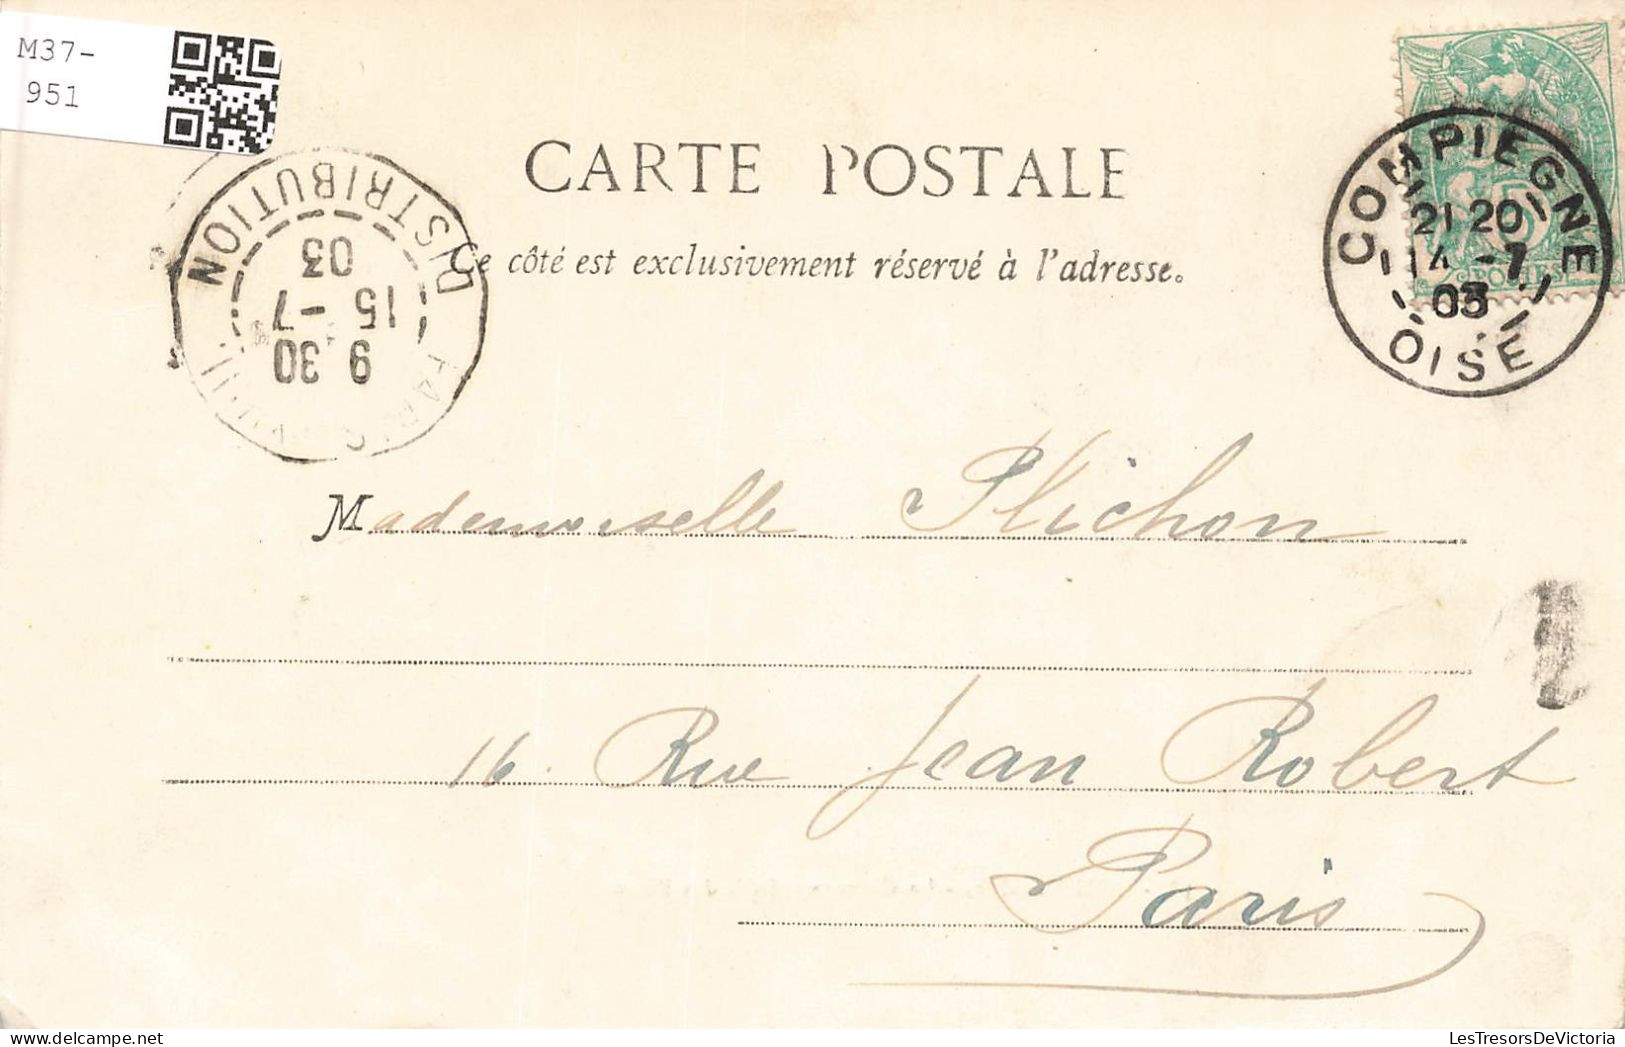 M37-
951
CARTE POSTALE
Ce côté est exclusivement réservé à l'adresse.
COMPIEGNE
21 20
14 -7
03
OISE
DISTRIBUTION
9 30
15 -7
03
PARIS
5
POSTES
Mademoiselle Plichon
16 Rue Jean Robert
Paris
LesTresorsDeVictoria